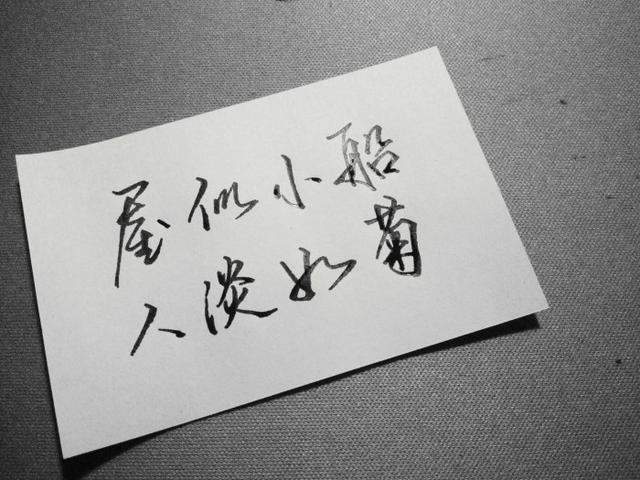 屋似小船
人淡如菊